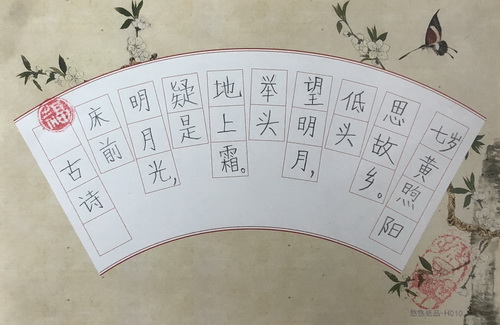 古诗
床前
明月光,
疑是
地上霜。
举头
望明月,
低头
思故乡。
七岁黄煦阳
纸品-H010